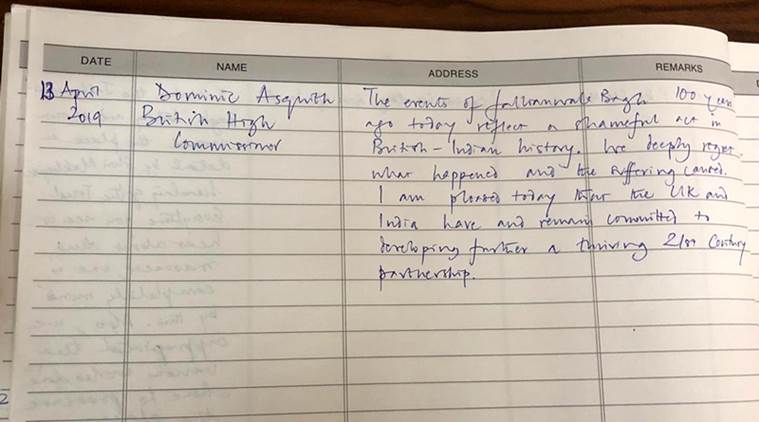 DATE NAME ADDRESS REMARKS
13 April Dominic Asquith The events of Jallianwala Bagh 100 years
2019 British High ago today reflect a shameful act in
Commissioner British-Indian history. We deeply regret
what happened and the suffering caused.
I am pleased today that the UK and
India have and remain committed to
developing further a thriving 21st Century
partnership.